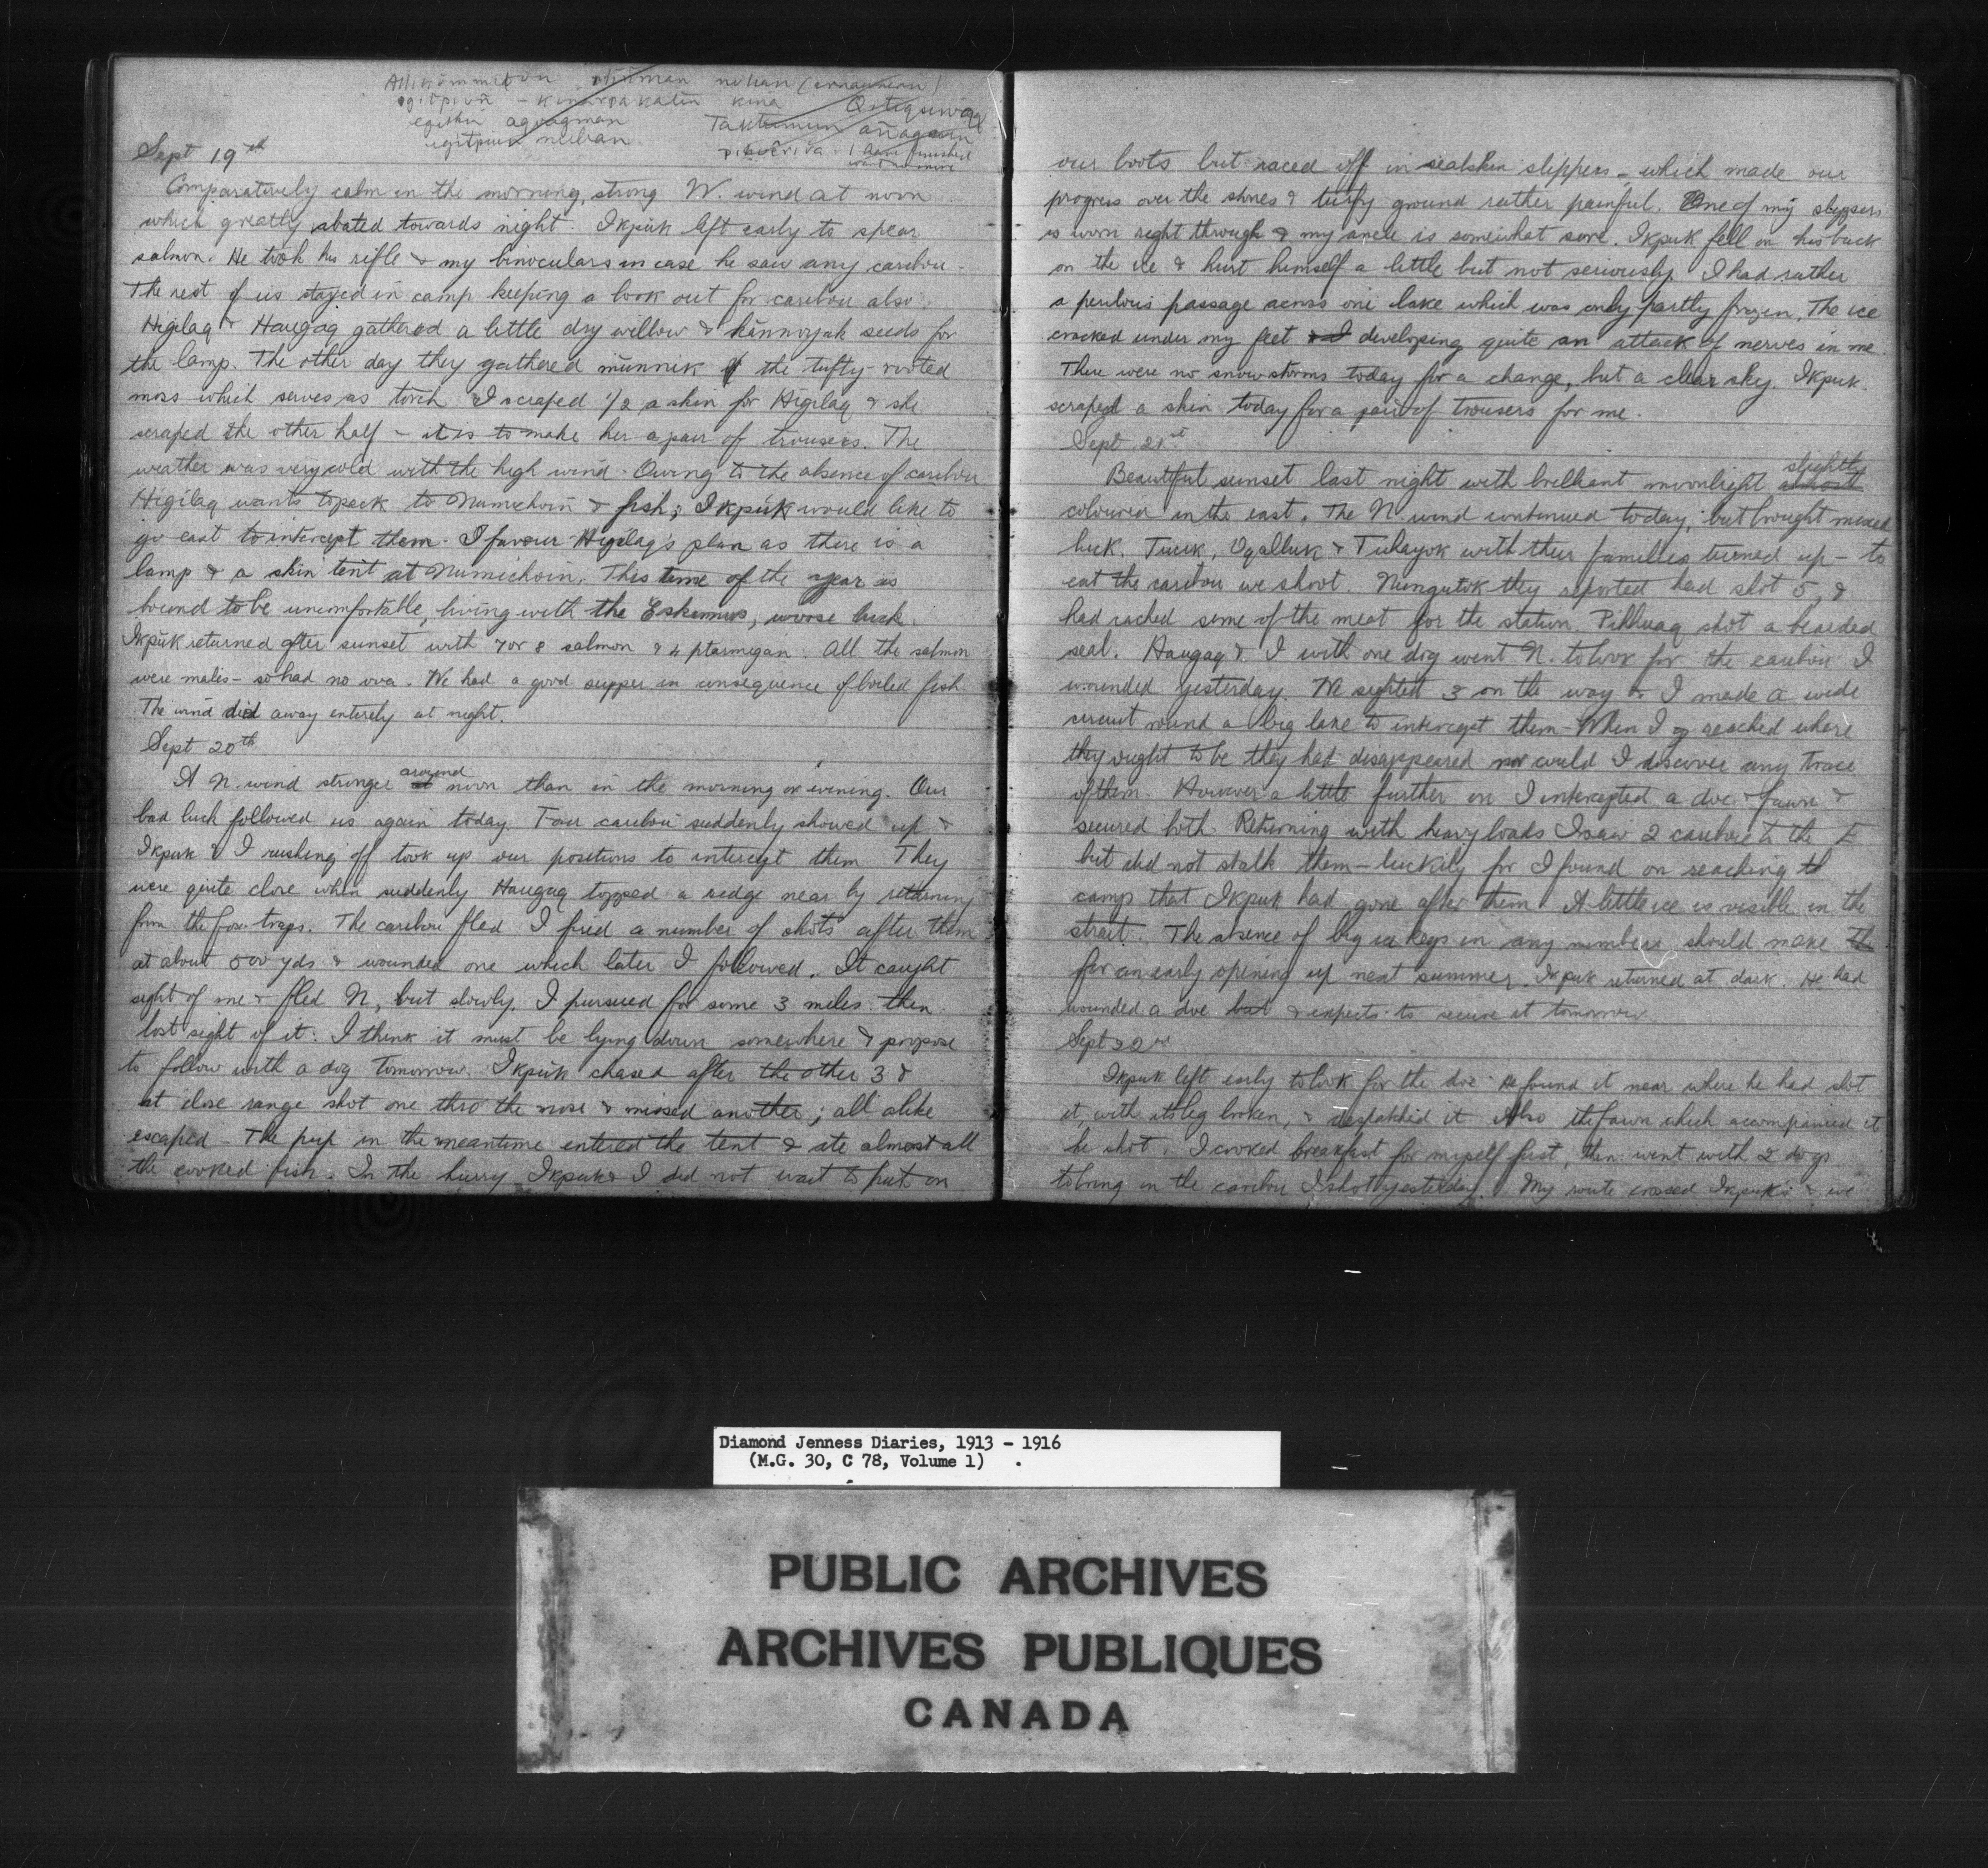 nuhan
kina
Sept 19th
Comparatively calm in the morning, strong W. wind at noon
which greatly abated towards night. Ikpuk left early to spear
salmon. He took his rifle & my binoculars in case he saw any caribou.
The rest of us stayed in camp keeping a look out for caribou also.
Higilaq & Haugaq gathered a little dry willow & kannoyak seeds for
the lamp. The other day they gathered munnik the tufty-rooted
moss which serves as torch. I scraped 1/2 a skin for Higilaq & she
scraped the other half - it is to make her a pair of trousers. The
weather was very cold with the high wind. Owing to the absence of caribou
Higilaq wants to pack to Numichoin & fish; Ikpuk would like to
go east to intercept them. I favour Higilaq's plan as there is a
lamp & a skin tent at Numichoin. This time of the year is
bound to be uncomfortable, living with the Eskimos, worse luck.
Ikpuk returned after sunset with 7 or 8 salmon & 4 ptarmigan. All the salmon
were males - so had no ova. We had a good supper in consequence of boiled fish.
The wind died away entirely at night.
Sept 20th
A N. wind stronger around noon than in the morning or evening. Our
bad luck followed us again today. Four caribou suddenly showed up &
Ikpuk & I rushing off took up our positions to intercept them. They
were quite close when suddenly Haugaq topped a ridge near by returning
from the fox-traps. The caribou fled. I fired a number of shots after them
at about 500 yds & wounded one which later I followed. It caught
sight of me & fled N, but slowly. I pursued for some 3 miles then
lost sight of it. I think it must be lying down somewhere & propose
to follow with a dog tomorrow. Ikpuk chased after the other 3 &
at close range shot one thro' the nose & missed another; all alike
escaped - The pup in the meantime entered the tent & ate almost all
the cooked fish. In the hurry Ikpuk & I did not wait to put on
our boots but raced off in sealskin slippers - which made our
progress over the stones & turfy ground rather painful. One of my slippers
is worn right through & my ancle is somewhat sore. Ikpuk fell on his back
on the ice & hurt himself a little but not seriously. I had rather
a perilous passage across one lake which was only partly frozen. The ice
cracked under my feet & I developing quite an attack of nerves in me.
There were no snow storms today for a change, but a clear sky. Ikpuk
scraped a skin today for a pair of trousers for me.
Sept 21st
Beautiful sunset last night with brilliant moonlight almost slightly
coloured in the east. The N. wind continued today, but brought mixed
luck. Tucik, Ugalluk & Tuhayok with their families turned up - to
eat the caribou we shoot. Nungutok they reported had shot 5, &
had cached some of the meat for the station. Pihhuaq shot a bearded
seal. Haugaq & I with one dog went N. to look for the caribou I
wounded yesterday. We sighted 3 on the way & I made a wide
circuit round a big lake to intercept them - When I reached where
they ought to be they had disappeared nor could I discover any trace
of them. However a little further on I intercepted a doe & fawn &
secured both. Returning with heavy loads I saw 2 caribou to the E
but did not stalk them - luckily for I found on reaching th
camp that Ikpuk had gone after them. A little ice is visible in the
strait. The absence of big ice kegs in any numbers should make Th
for an early opening up next summer. Ikpuk returned at dark. He had
wounded a doe but & expects to secure it tomorrow
Sept 22nd
Ikpuk left early to look for the doe. He found it near where he had shot
it, with its leg broken, & despatched it. Also the fawn which accompanied it
he shot. I cooked breakfast for myself first, then went with 2 dogs
to bring in the caribou I shot yesterday. My route crossed Ikpuk's & we
Diamond Jenness Diaries, 1913 - 1916
(M.G. 30, C 78, Volume 1)
PUBLIC ARCHIVES
ARCHIVES PUBLIQUES
CANADA